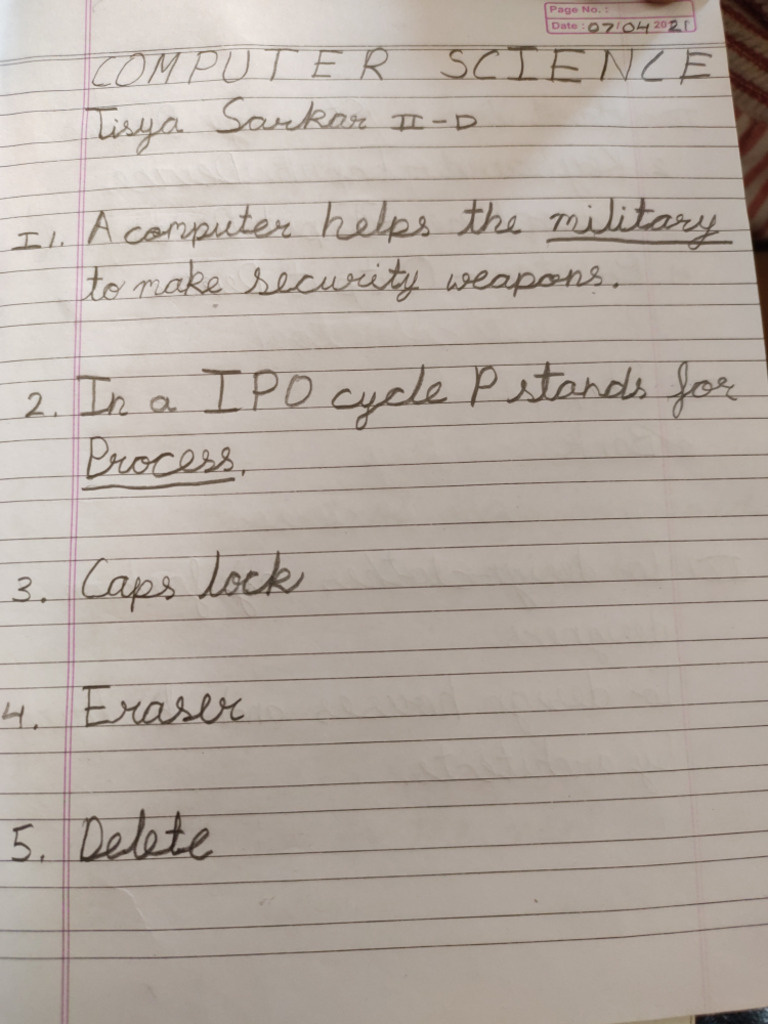 Page No. :
Date : 07/04 2021
COMPUTER SCIENCE
Tisya Sarkar II-D
I 1. A computer helps the military
to make security weapons.
2. In a IPO cycle P stands for
Process.
3. Caps lock
4. Eraser
5. Delete